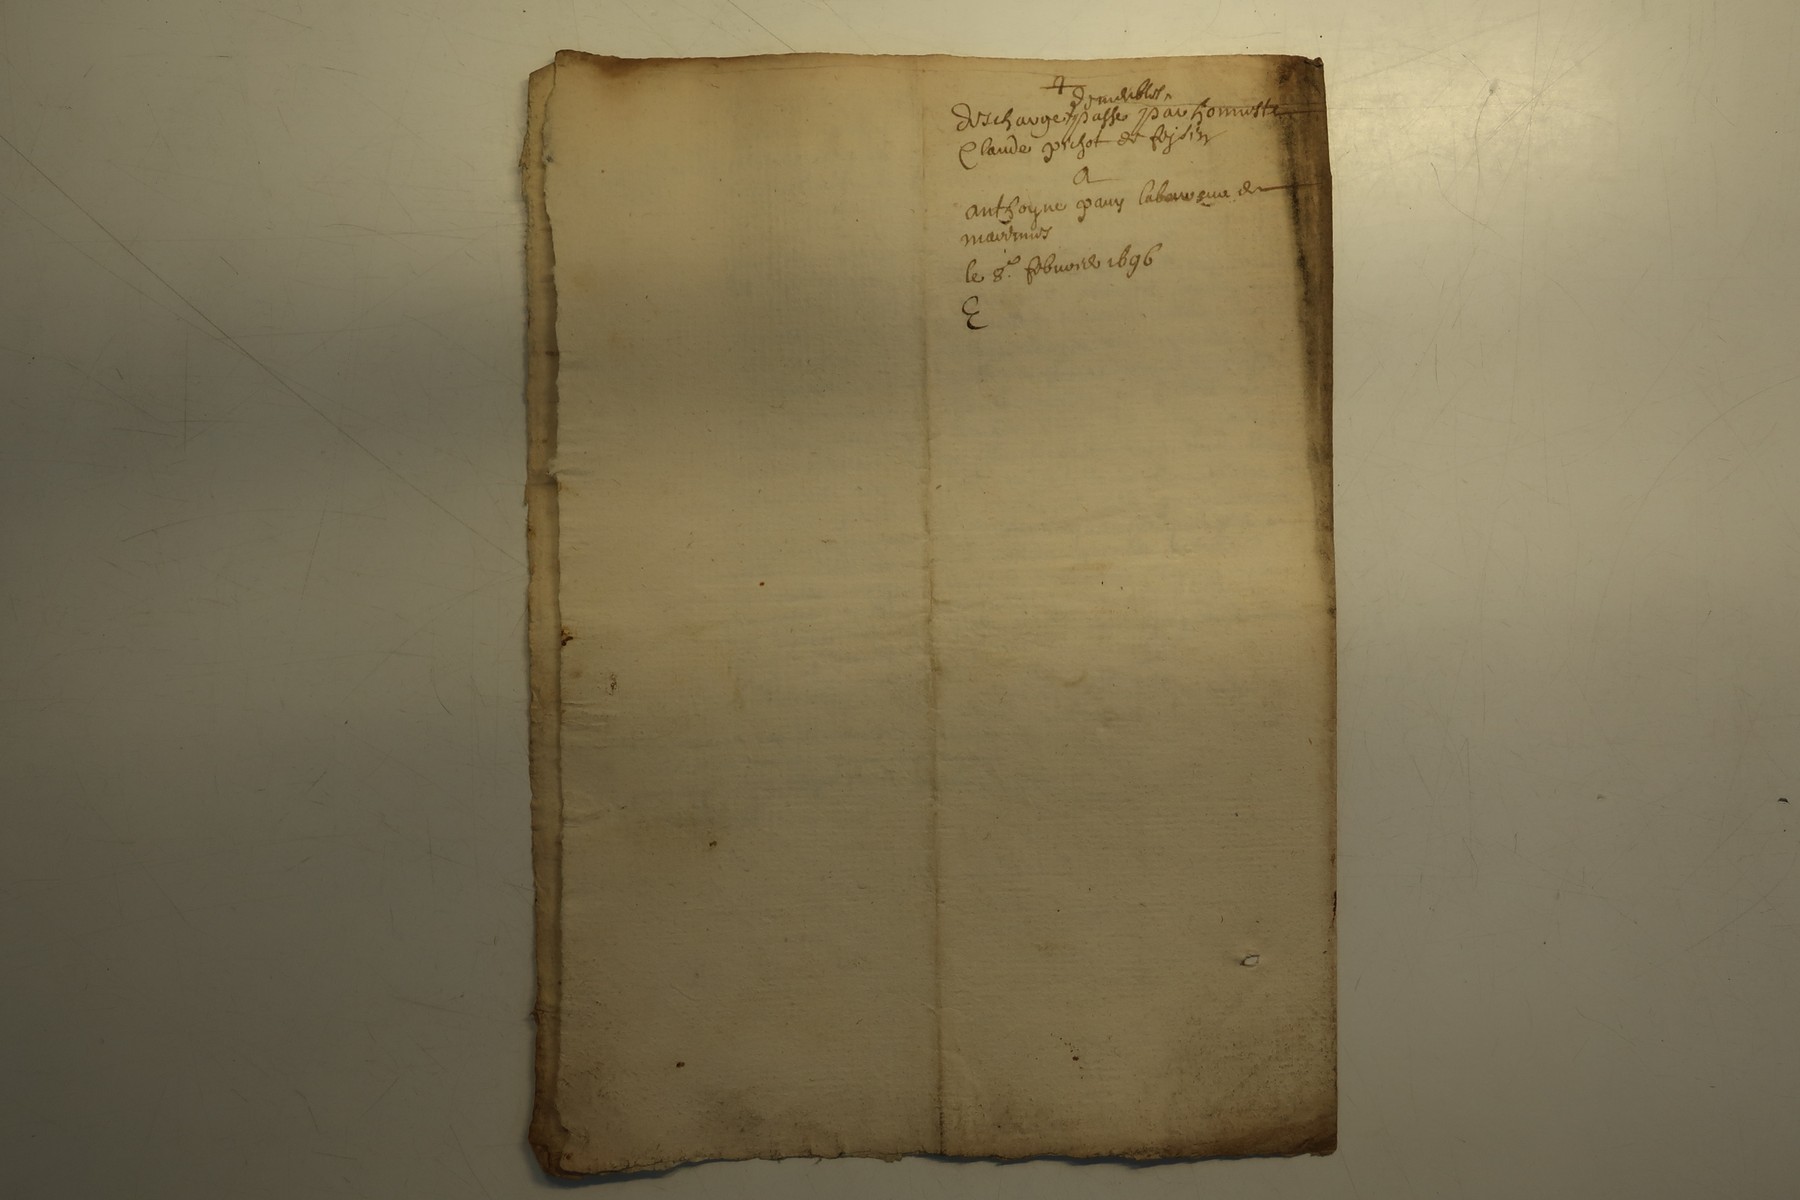 de meubles
descharge passé par honneste
Claude pichot de fesin
a
anthoyne pauy laboureur de
marennes
le 8e febvrier 1696
E